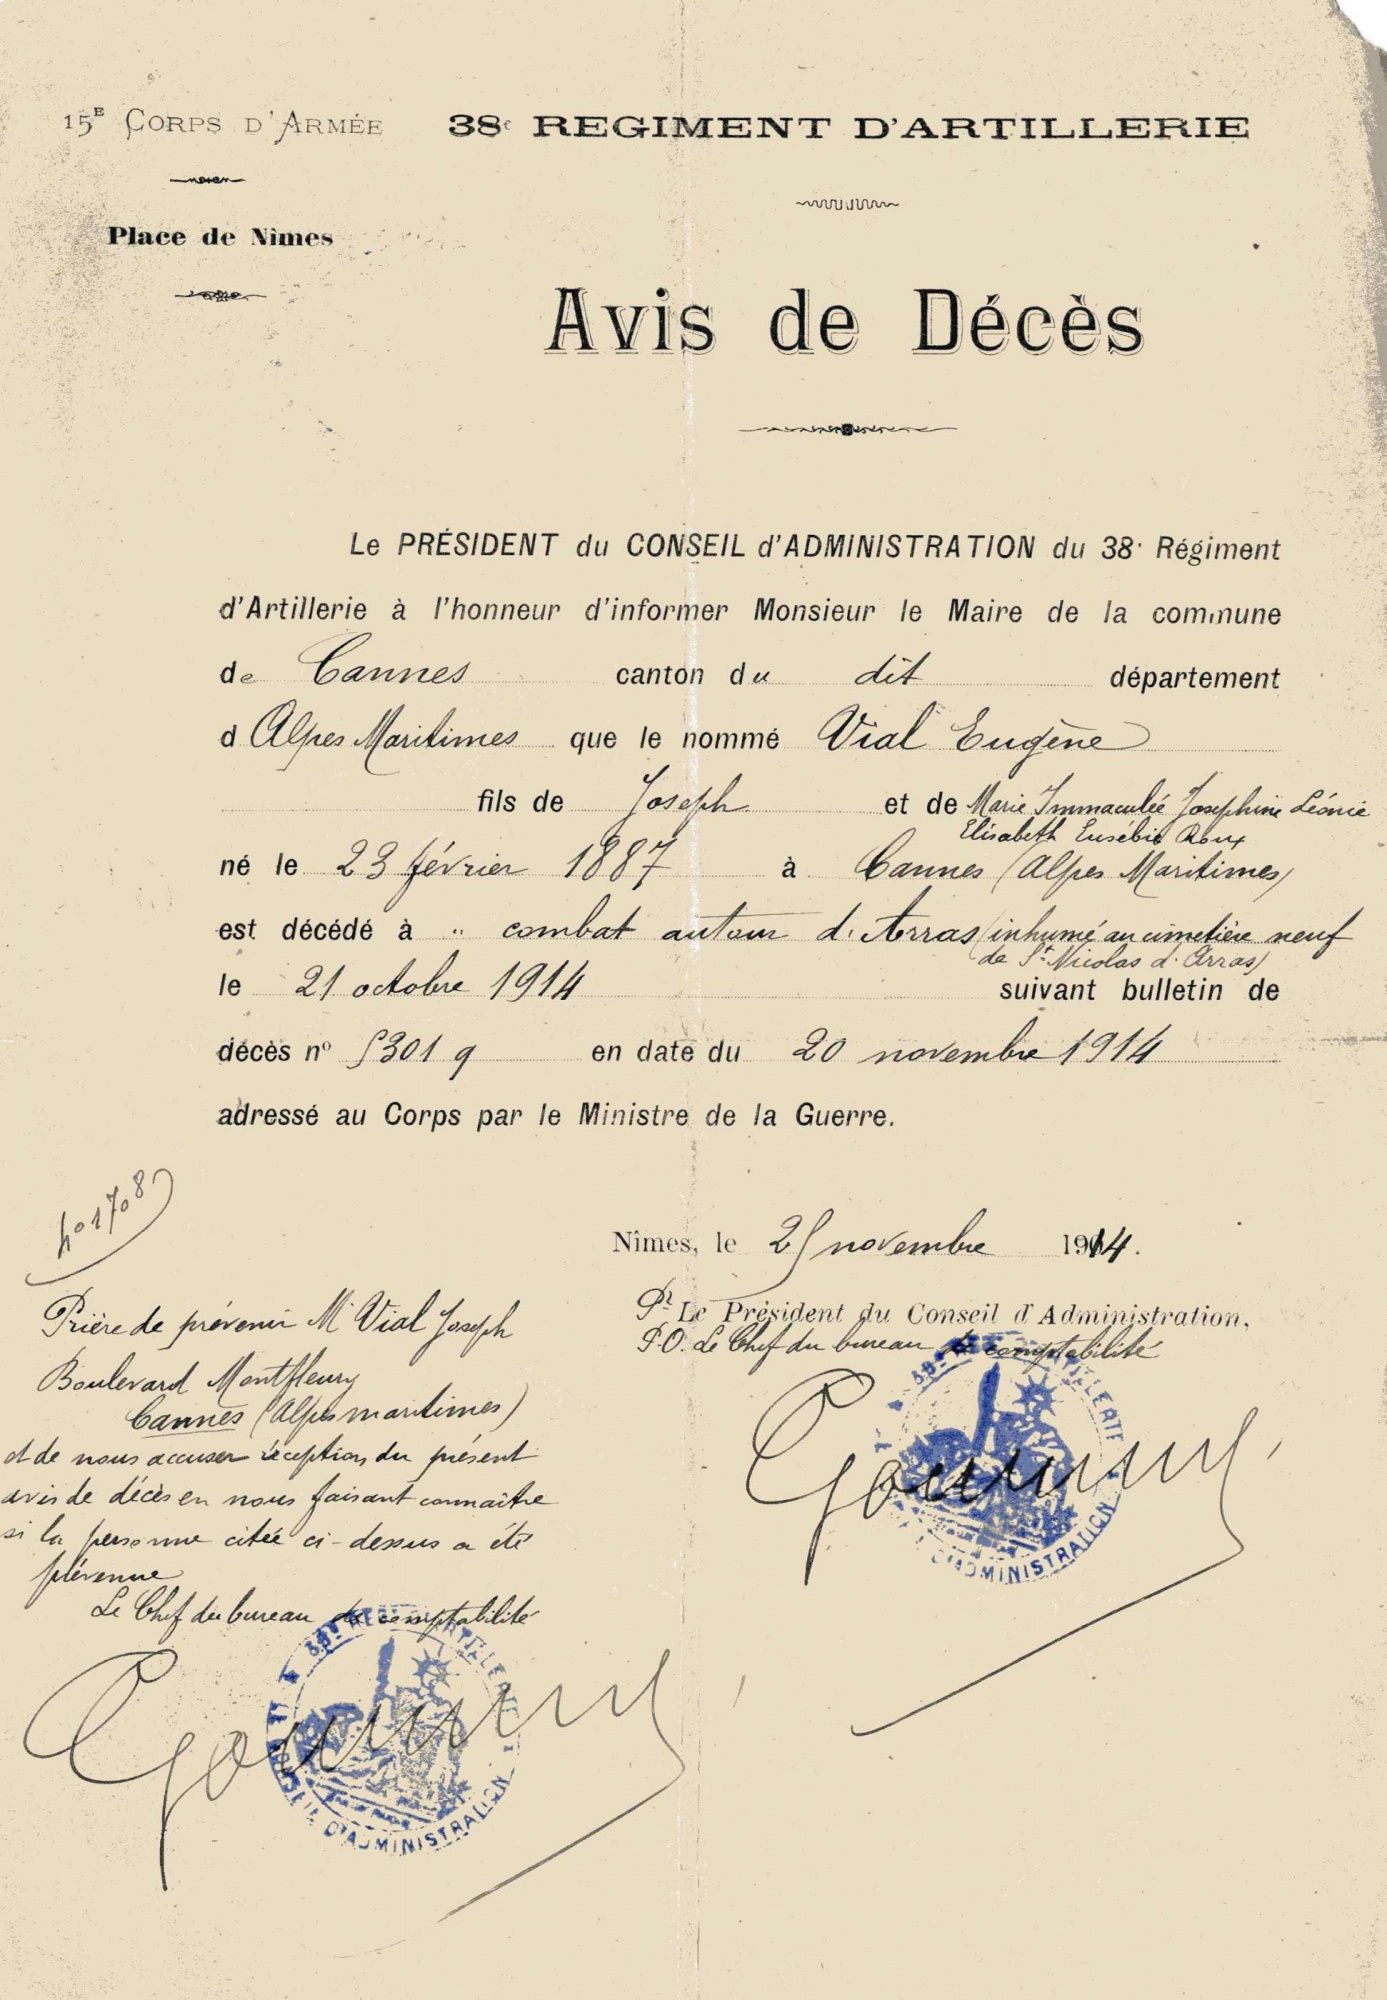 15E CORPS D'ARMÉE
38e REGIMENT D'ARTILLERIE
Place de Nîmes
Avis de Décès
Le PRÉSIDENT du CONSEIL d'ADMINISTRATION du 38e Régiment
d'Artillerie à l'honneur d'informer Monsieur le Maire de la commune
de Cannes canton du dit département
d Alpes Maritimes que le nommé Vial Eugène
fils de Joseph et de Marie Immaculée Joséphine Léonie
Elisabeth Eusébie Roux
né le 23 février 1887 à Cannes (Alpes Maritimes)
est décédé à " combat autour d'Arras (inhumé au cimetière neuf
de St Nicolas d'Arras)
le 21 octobre 1914 suivant bulletin de
décès no 5301 9 en date du 20 novembre 1914
adressé au Corps par le Ministre de la Guerre.
401708
Nîmes, le 25 novembre 1914.
Pr Le Président du Conseil d'Administration,
P.O. Le Chef du bureau de comptabilité
38e RÉGT D'ARTILLERIE
D'ADMINISTRATION
Prière de prévenir Mr Vial Joseph
Boulevard Montfleury
Cannes (Alpes maritimes)
et de nous accuser réception du présent
avis de décès en nous faisant connaître
si la personne citée ci-dessus a été
prévenue
Le Chef du bureau de comptabilité
38e RÉGT D'ARTILLERIE
CONSEIL D'ADMINISTRATION